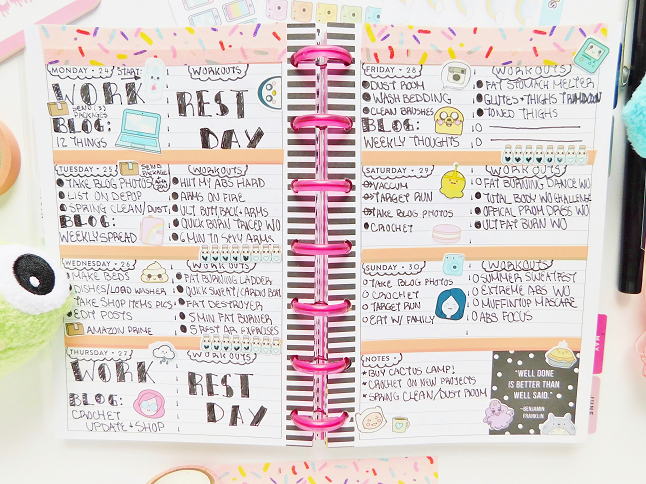 MONDAY • 24
START:
WORK
SEND (2) PACKAGES
BLOG:
12 THINGS
WORKOUTS
REST
DAY
TUESDAY • 25
SEND PACKAGE
TAKE BLOG PHOTOS
LIST ON DEPOP
SPRING CLEAN/DUST
BLOG:
WEEKLY SPREAD
WORKOUTS
HIIT MY ABS HARD
ARMS ON FIRE
ULT BUTT BACK + ARMS
QUICK BURN WO
6 MIN TO SEXY ARMS
WEDNESDAY • 26
MAKE BEDS
DISHES/LOAD WASHER
TAKE SHOP ITEMS PICS
EDIT POSTS
AMAZON PRIME
WORKOUTS
FAT BURNING LADDER
QUICK SWEAT/CARDIO BURN
FAT DESTROYER
5 MIN FAT BURNER
5 BEST AB EXERCISES
THURSDAY • 27
WORK
BLOG:
CROCHET
UPDATE + SHOP
WORKOUTS
REST
DAY
FRIDAY • 28
DUST ROOM
WASH BEDDING
CLEAN BRUSHES
BLOG:
WEEKLY THOUGHTS
WORKOUTS
FAT STOMACH MELTER
GLUTES + THIGHS
TONED THIGHS
SATURDAY • 29
VACUUM
TARGET RUN
TAKE BLOG PHOTOS
CROCHET
WORKOUTS
FAT BURNING DANCE WO
TOTAL BODY WO CHALLENGE
OFFICIAL PROM DRESS WO
ULT FAT BURN WO
SUNDAY • 30
TAKE BLOG PHOTOS
CROCHET
TARGET RUN
EAT W/ FAMILY
WORKOUTS
SUMMER SWEATFEST
EXTREME ABS WO
MUFFINTOP
ABS FOCUS
NOTES •
• BUY CACTUS CAMP!
• CROCHET ON NEW PROJECTS
• SPRING CLEAN/DUST ROOM
"WELL DONE
IS BETTER THAN
WELL SAID."
~BENJAMIN
FRANKLIN
MAY
JUNE